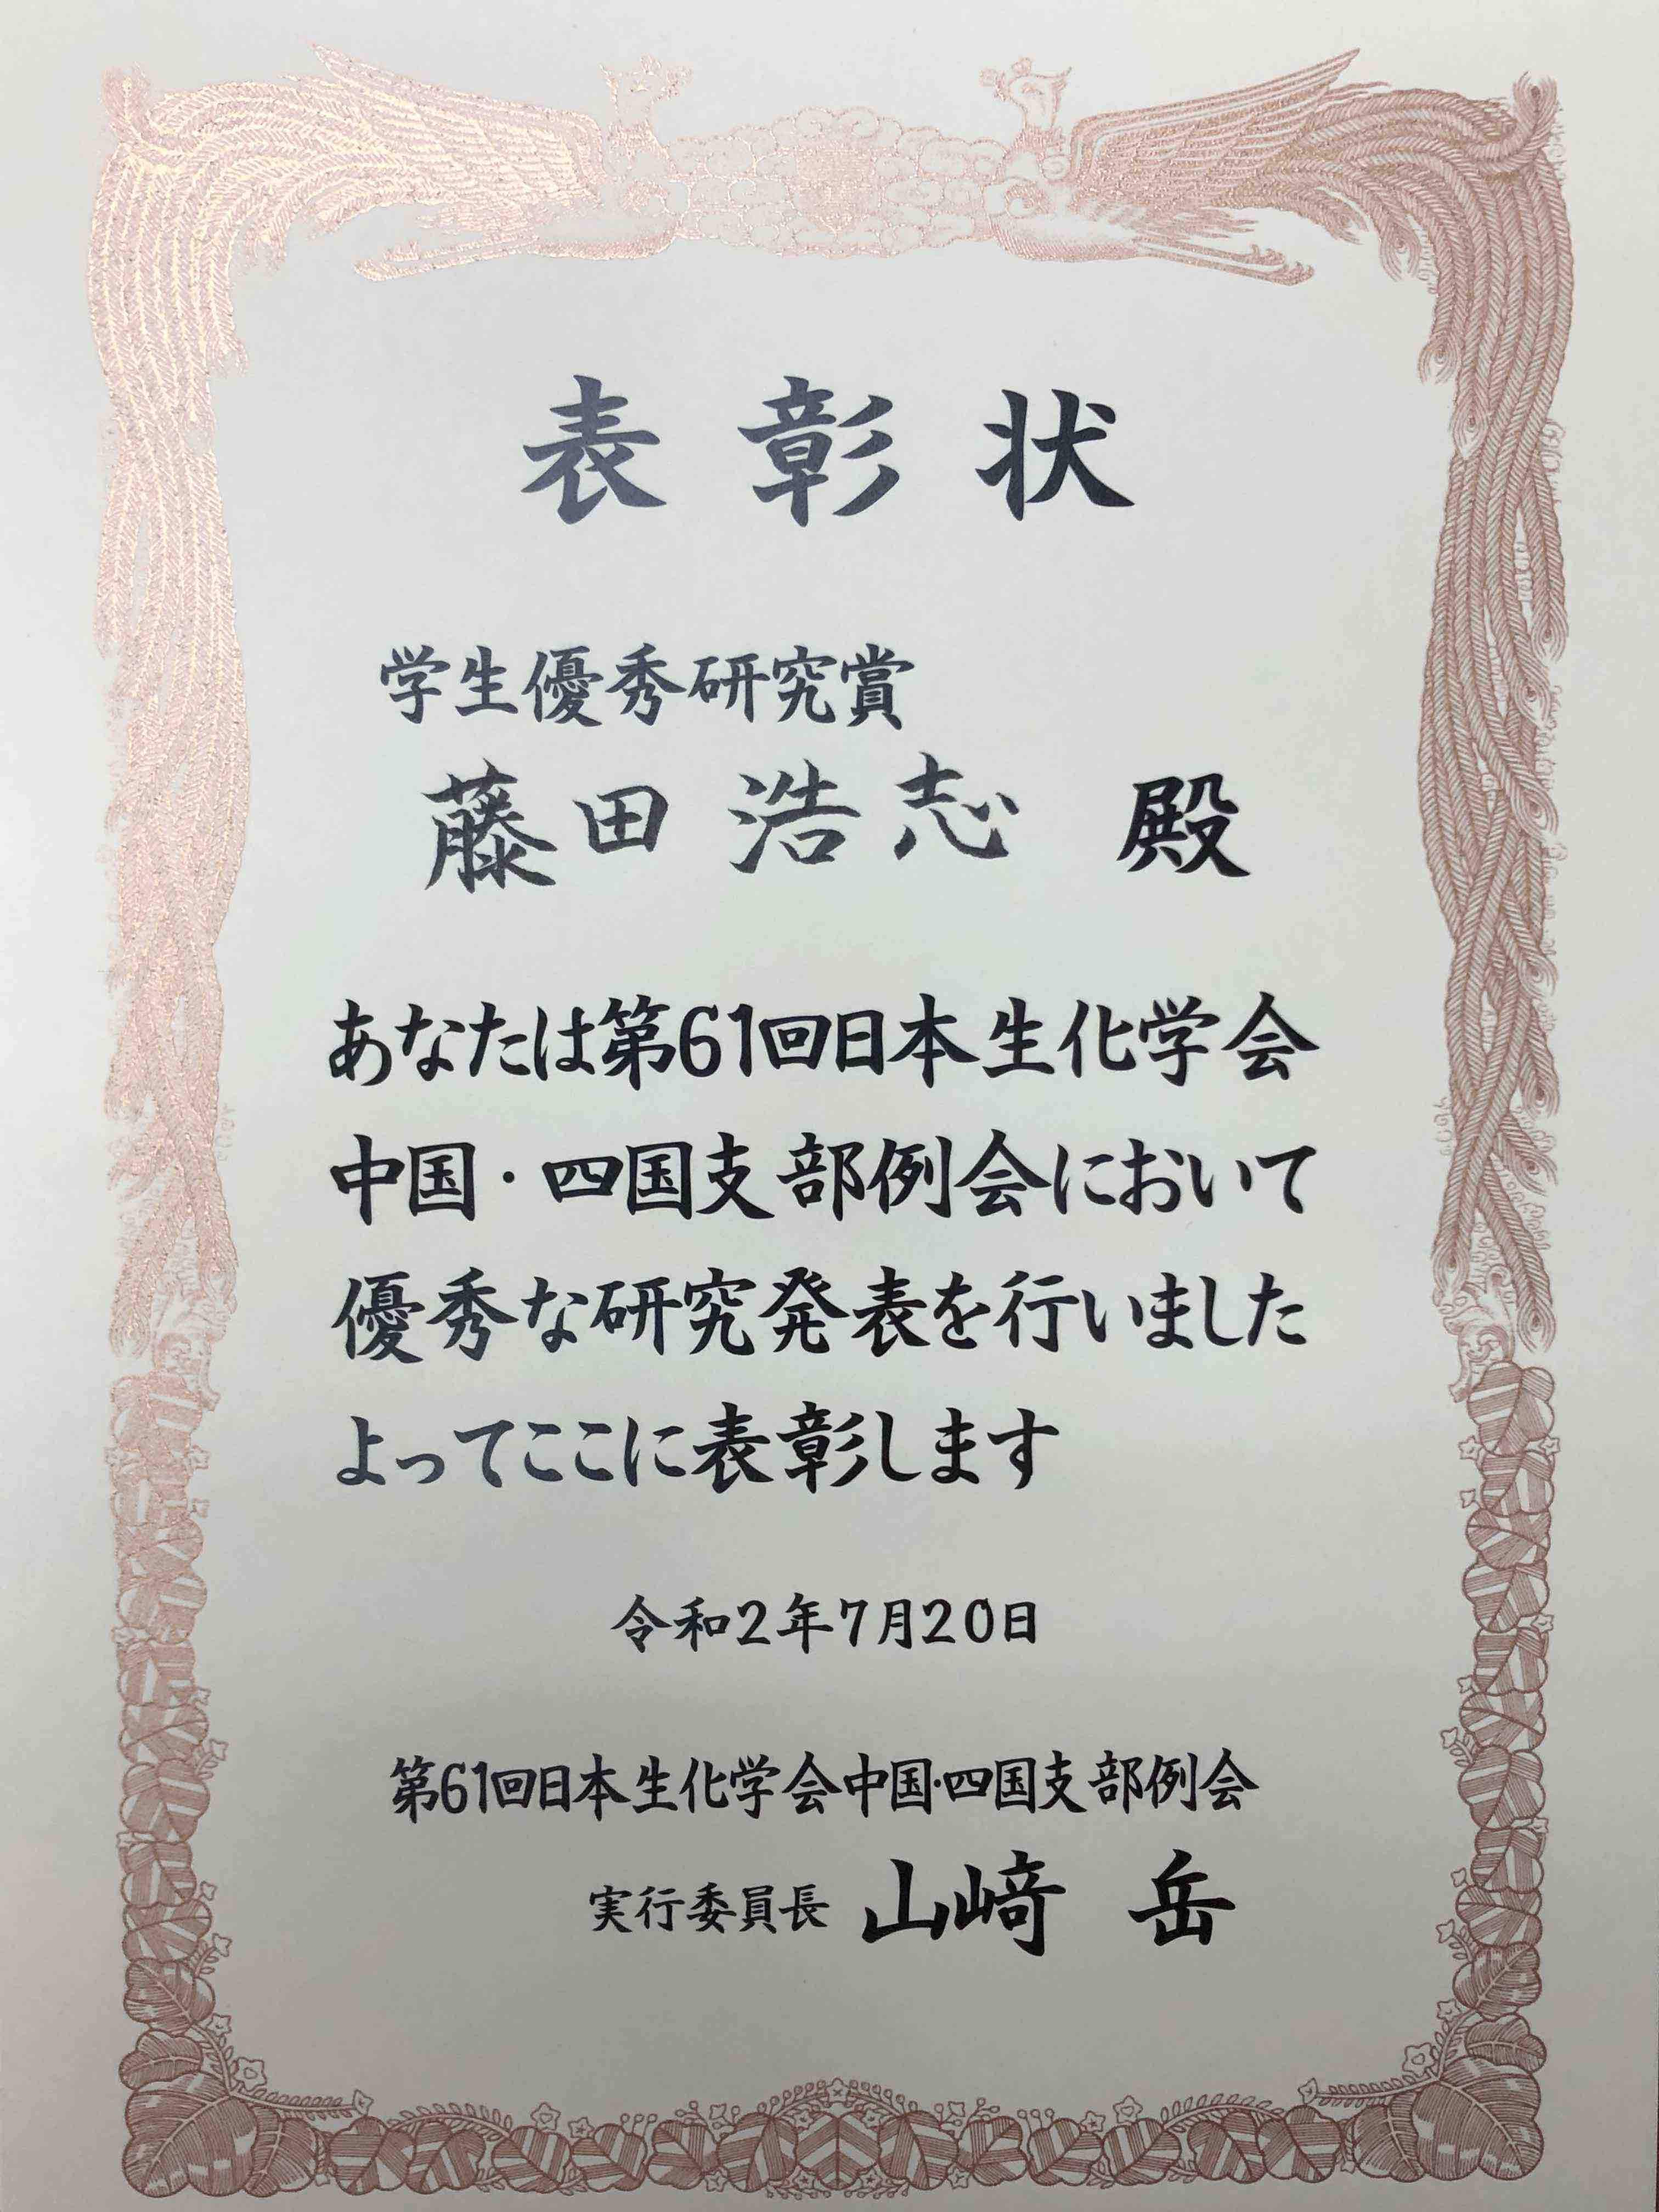 表彰状
学生優秀研究賞
藤田浩志 殿
あなたは第61回日本生化学会
中国・四国支部例会において
優秀な研究発表を行いました
よってここに表彰します
令和2年7月20日
第61回日本生化学会中国・四国支部例会
実行委員長 山﨑 岳